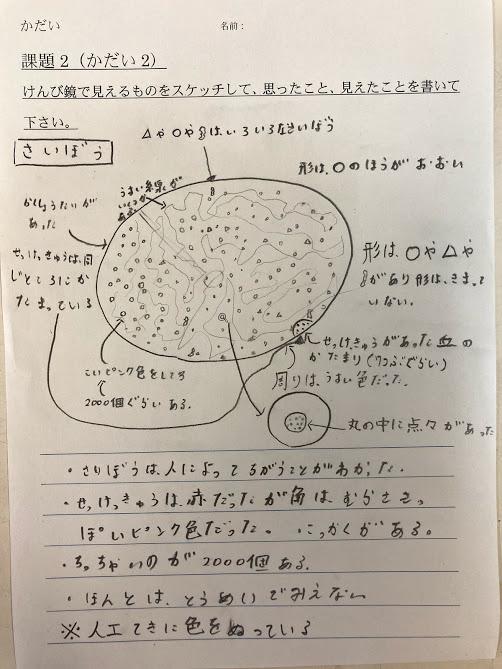 かだい
名前：
課題２（かだい２）
けんび鏡で見えるものをスケッチして、思ったこと、見えたことを書いて
下さい。
さいぼう
△や〇や8はいろいろなさいぼう
形は、〇のほうがおおい
うすい線が
いくつか
ある
があった
せっけっきゅうは、同
じところにか
たまっている
形は、〇や△や
8があり形は、きまって
いない。
せっけっきゅうがあった血の
かたまり(7つぶぐらい)
周りは、うすい色だった。
こいピンク色をしてる
2000個ぐらいある。
丸の中に点々があった
・さいぼうは、人によってちがうことがわかった。
・せっけっきゅうは、赤だったが角は、むらさきっ
ぽいピンク色だった。にっかくがある。
・ちっちゃいのが2000個ある。
・ほんとは、とうめいでみえない
※人工てきに色をぬっている